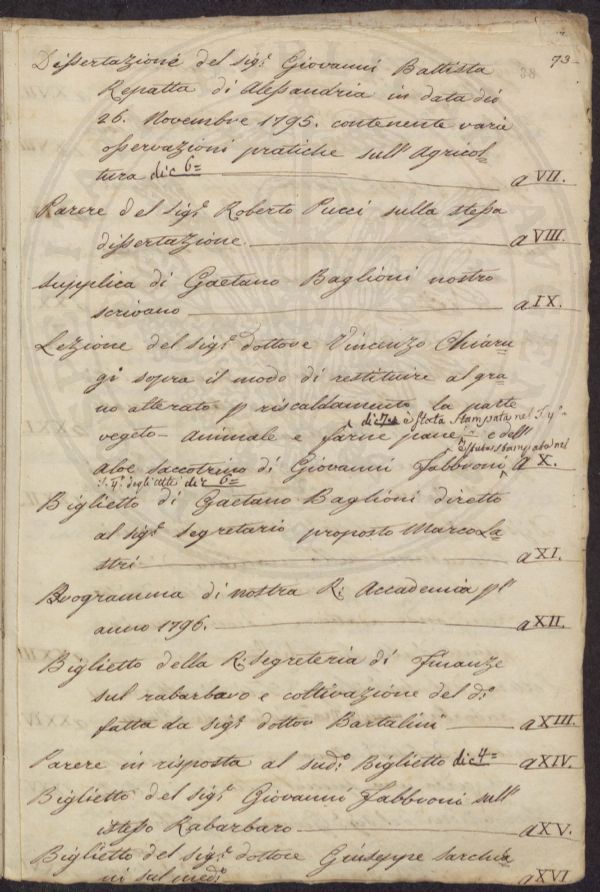 73
Dissertazione del sig.r Giovanni Battista
Repatta di Alessandria in data dei
26. Novembre 1795. contenente varie
osservazioni pratiche sull' Agricol=
tura dic 6= a VII.
Parere del sig.r Roberto Pucci sulla stessa
dissertazione. a VIII.
Supplica di Gaetano Baglioni nostro
scrivano a IX.
Lezione del sig.r dottore Vincenzo Chiaru=
gi sopra il modo di restituire al gra=
no alterato p riscaldamento la parte
vegeto-animale e farne pane = e dell'
dic 7= è stata stampata nel T. 4.o
Aloe saccotrino di Giovanni Fabbroni a X.
è stato stampato nel
T. 4.o degli Atti dic 6=
Biglietto di Gaetano Baglioni diretto
al sig.r segretario proposto Marco La=
stri a XI.
Programma di nostra R. Accademia pl'
anno 1796. a XII.
Biglietto della R. Segreteria di Finanze
sul rabarbaro e coltivazione del d.o
fatta da sig.r dottor Bartalini a XIII.
Parere in risposta al sud.o Biglietto dic 4= a XIV.
Biglietto del sig.r Giovanni Fabbroni sull'
istesso Rabarbaro a XV.
Biglietto del sig.r dottore Giuseppe Sarchia
ni sul med.o a XVI